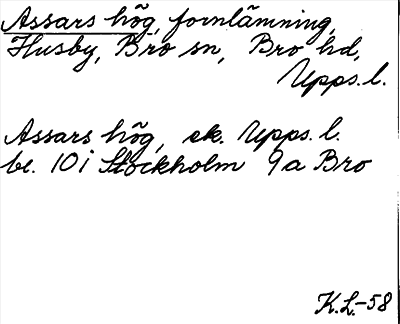 Assars hög, fornlämning,
Husby, Bro sn, Bro hd,
Upps. l.
Assars hög, ek. Upps. l.
bl. 10 i Stockholm 9a Bro
K.L.-58